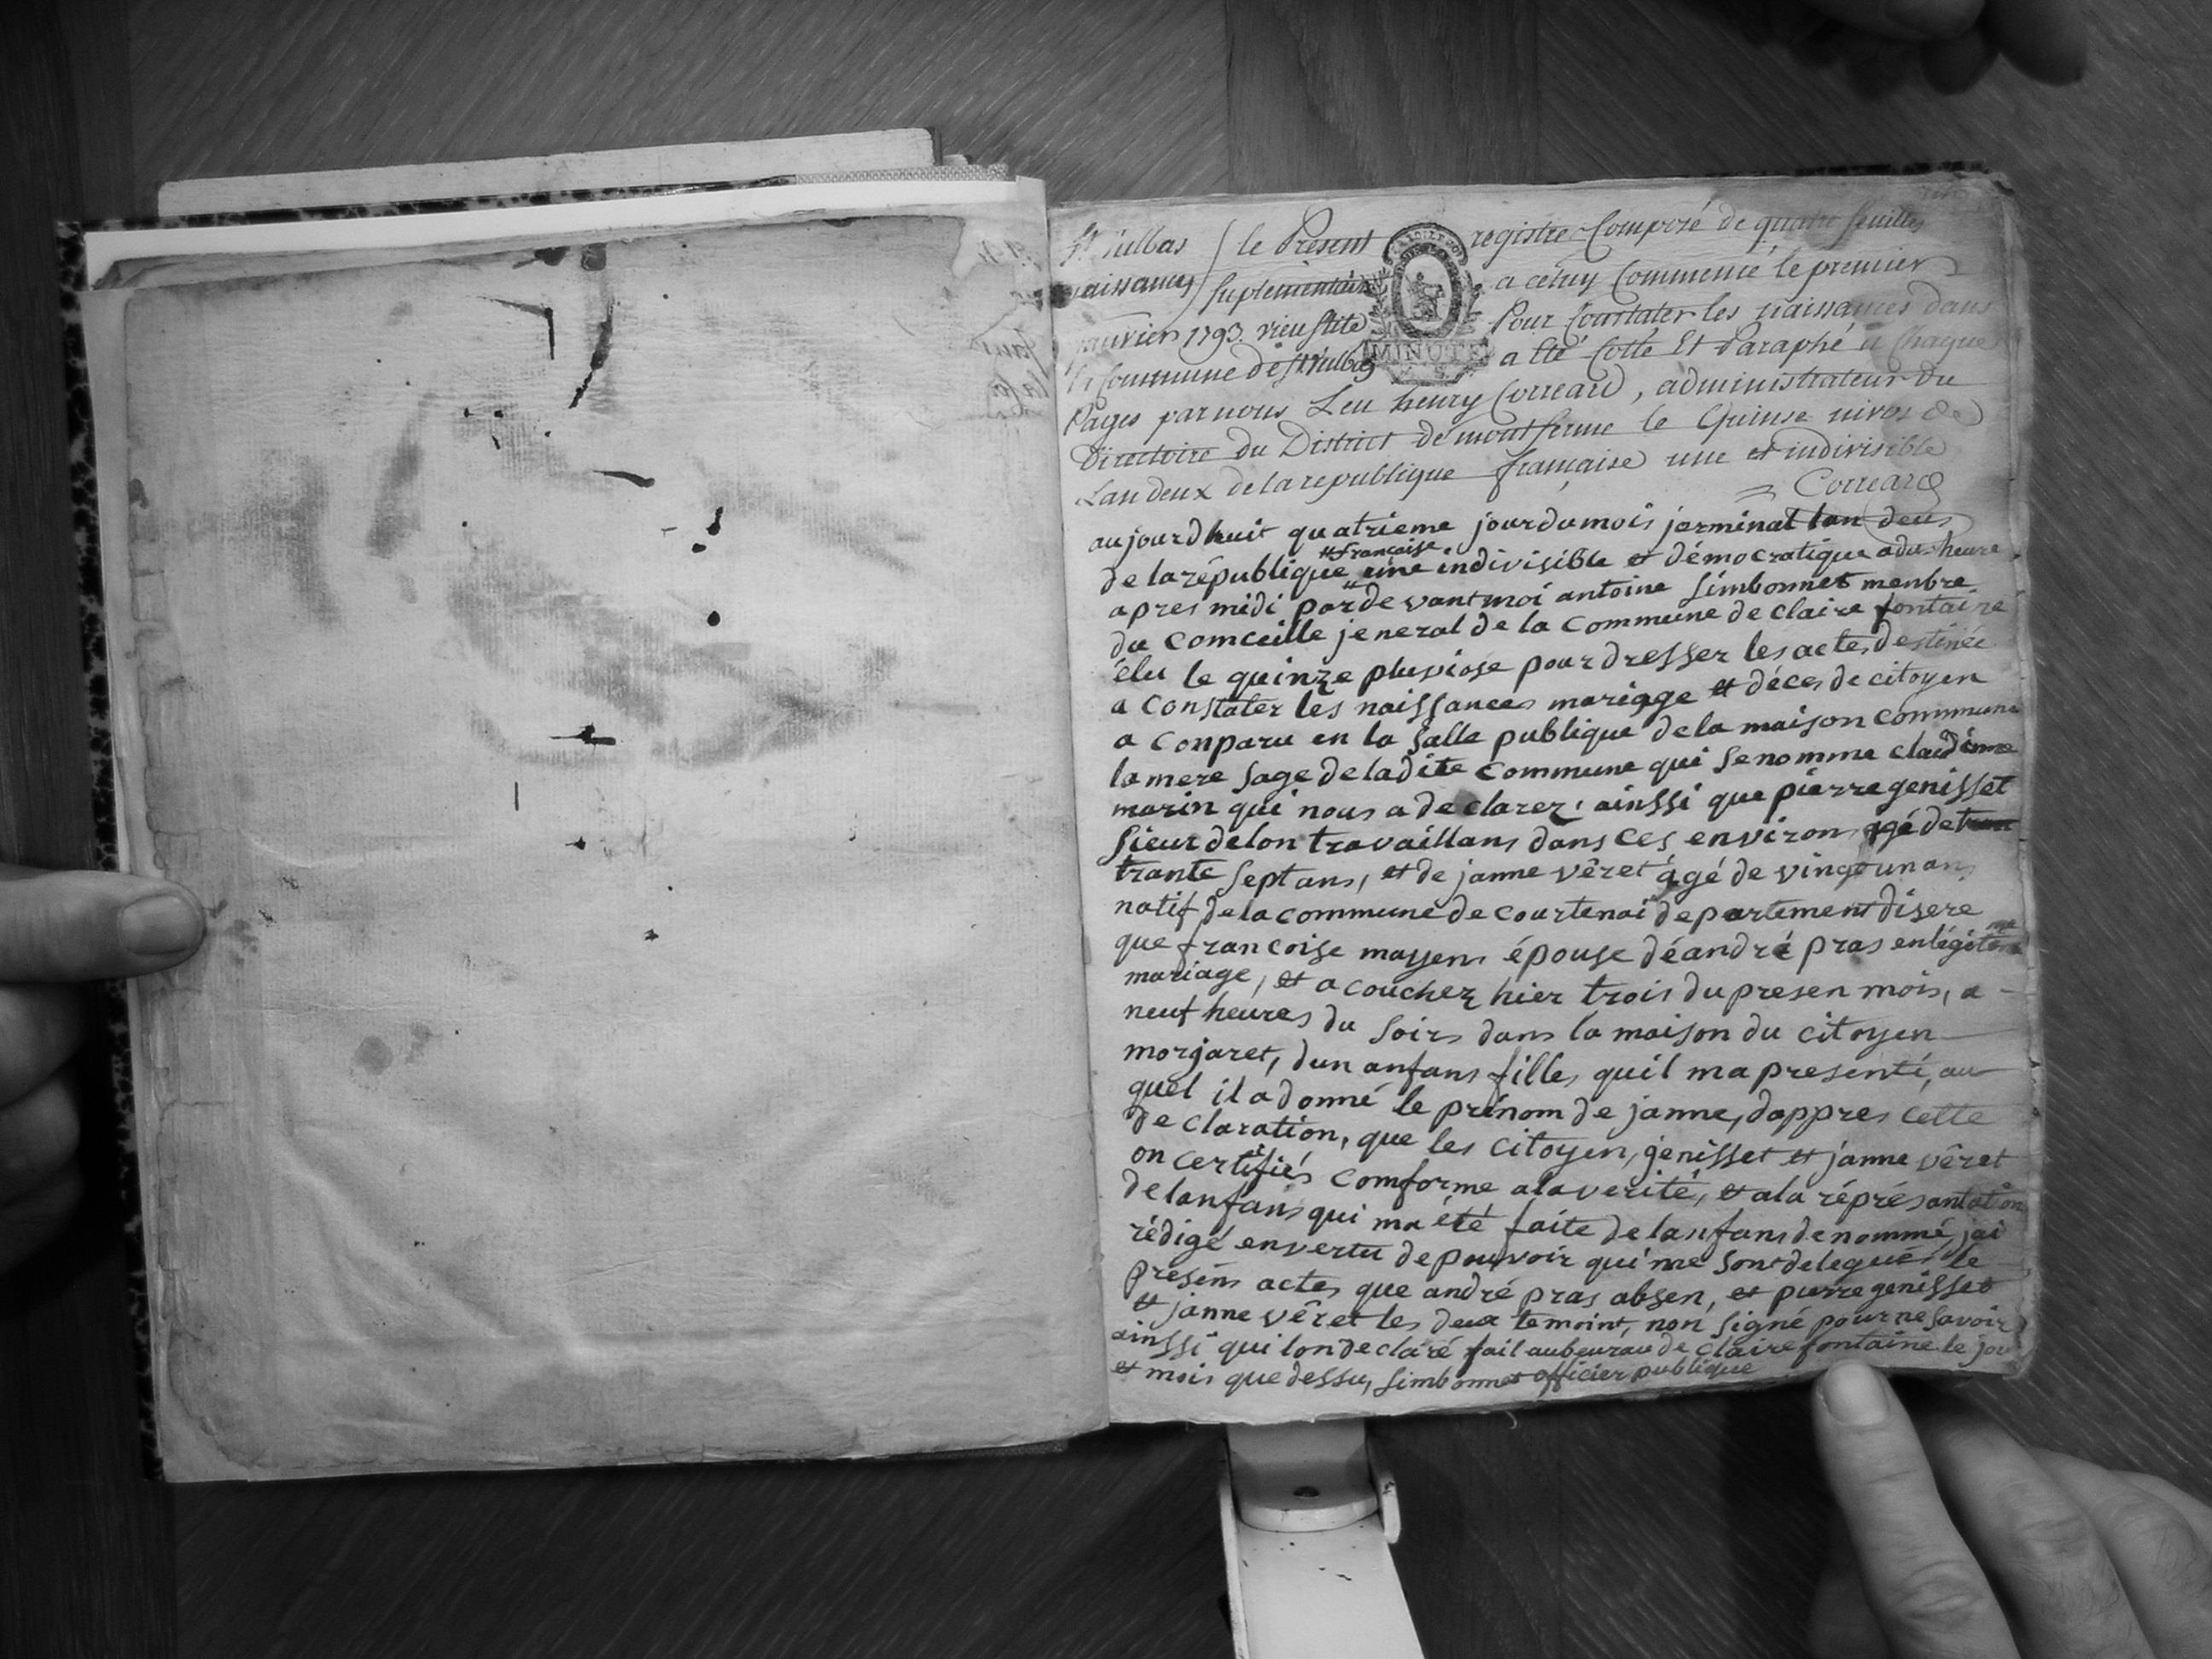 St Vulbas / le Présent registre Composé de quatre feuilles
naissances / suplementaire a celuy Commencé le premier
janvier 1793. vieu stile Pour Constater les naissances dans
la Commune de St Vulbas a été Cotté Et Paraphé a Chaque
MINUTE
Pages par nous Leu henry Correard, administrateur du
Directoire du District de montferme le Quinse nivos de
Lan deux de la republique française une et indivisible
Correard
aujourdhuit quatrieme jour du mois jerminal lan deus
de la république française une indivisible et démocratique a deus heure
apres midi pardevant moi antoine Simbonnet menbre
du comceille jeneral de la commune de claire fontaine
élu le quinze pluviose pour dresser les actes destinée
a constater les naissances mariage et déces de citoyen
a conparu en la salle publique de la maison commune
la mere sage de ladite commune qui se nomme claudinne
marin qui nous a declarez, ainssi que pierre genisset
sieur de lon travaillans dans ces environ agé de
trante sept ans, et de janne vêret âgé de vingt un ans
natif de la commune de courtenai departement disere
que francoise mayen épouse dé andré pras en légitime
mariage, et a couchez hier trois du presen mois, a
neuf heures du soirs dans la maison du citoyen
morjaret, dun anfans fille, quil ma presenté, au
quel il a donné le prénom de janne, dappres cette
declaration, que les citoyen, genisset et janne vêret
on certifiés comforme a la verité, et a la réprésantation
de lanfans qui ma été faite de lanfans denommé, jai
rédigé en vertu de pouvoir qui me sont delegués le
presens actes que andré pras absen, et pierre genisset
et janne vêret les deux temoint, non signé pour ne savoir
ainssi qui lon declaré fait au beurau de claire fontaine le jour
et mois que dessu, Simbonnet officier publique